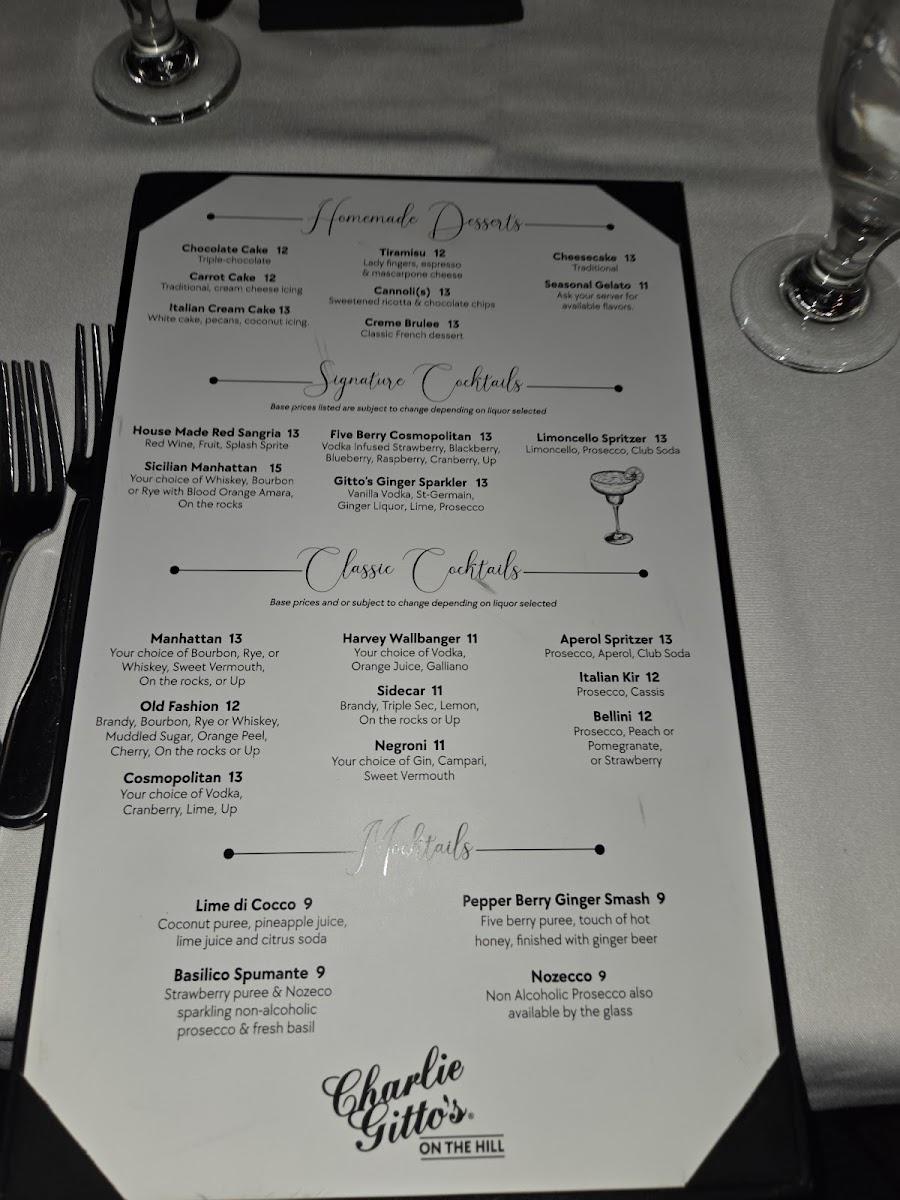 Homemade Desserts
Chocolate Cake 12
Triple-chocolate
Carrot Cake 12
Traditional, cream cheese icing
Italian Cream Cake 13
White cake, pecans, coconut icing.
Tiramisu 12
Lady fingers, espresso
& mascarpone cheese
Cannoli(s) 13
Sweetened ricotta & chocolate chips
Creme Brulee 13
Classic French dessert
Cheesecake 13
Traditional
Seasonal Gelato 11
Ask your server for
available flavors.
Signature Cocktails
Base prices listed are subject to change depending on liquor selected
House Made Red Sangria 13
Red Wine, Fruit, Splash Sprite
Sicilian Manhattan 15
Your choice of Whiskey, Bourbon
or Rye with Blood Orange Amara,
On the rocks
Five Berry Cosmopolitan 13
Vodka Infused Strawberry, Blackberry,
Blueberry, Raspberry, Cranberry, Up
Gitto's Ginger Sparkler 13
Vanilla Vodka, St-Germain,
Ginger Liquor, Lime, Prosecco
Limoncello Spritzer 13
Limoncello, Prosecco, Club Soda
Classic Cocktails
Base prices and or subject to change depending on liquor selected
Manhattan 13
Your choice of Bourbon, Rye, or
Whiskey, Sweet Vermouth,
On the rocks, or Up
Old Fashion 12
Brandy, Bourbon, Rye or Whiskey,
Muddled Sugar, Orange Peel,
Cherry, On the rocks or Up
Cosmopolitan 13
Your choice of Vodka,
Cranberry, Lime, Up
Harvey Wallbanger 11
Your choice of Vodka,
Orange Juice, Galliano
Sidecar 11
Brandy, Triple Sec, Lemon,
On the rocks or Up
Negroni 11
Your choice of Gin, Campari,
Sweet Vermouth
Aperol Spritzer 13
Prosecco, Aperol, Club Soda
Italian Kir 12
Prosecco, Cassis
Bellini 12
Prosecco, Peach or
Pomegranate,
or Strawberry
Mocktails
Lime di Cocco 9
Coconut puree, pineapple juice,
lime juice and citrus soda
Basilico Spumante 9
Strawberry puree & Nozeco
sparkling non-alcoholic
prosecco & fresh basil
Pepper Berry Ginger Smash 9
Five berry puree, touch of hot
honey, finished with ginger beer
Nozecco 9
Non Alcoholic Prosecco also
available by the glass
Charlie
Gitto's®
ON THE HILL